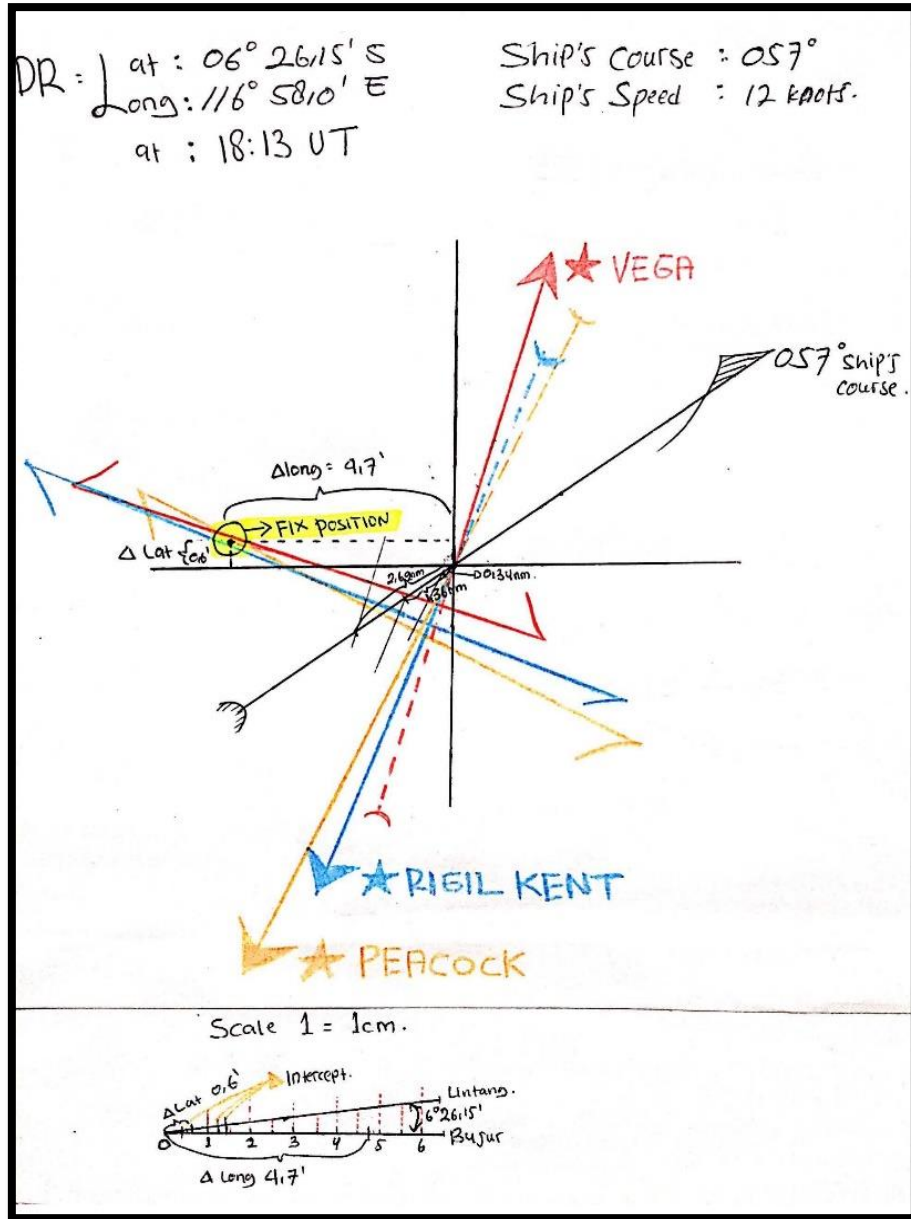 DR : Lat : 06° 26,15' S
Long : 116° 58,0' E
at : 18:13 UT
Ship's Course : 057°
Ship's Speed : 12 knots.
★ VEGA
057° ship's
course.
Δlong = 4,7'
→ FIX POSITION
Δ Lat {0,6'
2,69nm
→0,34nm.
★ RIGIL KENT
★ PEACOCK
Scale 1 = 1cm.
Δ Lat 0,6'
Intercept.
Lintang.
6°26,15'
0 1 2 3 4 5 6 Bujur
Δ Long 4,7'